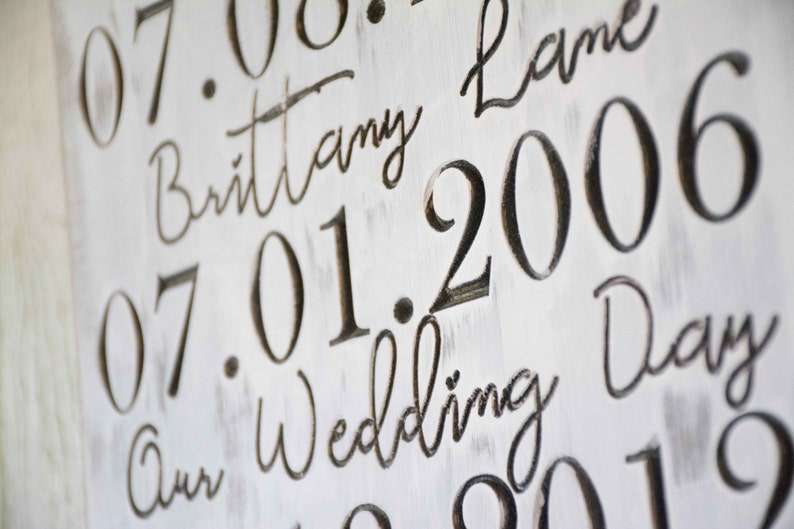 07.08.
Brittany Lane
07.01.2006
Our Wedding Day
2012